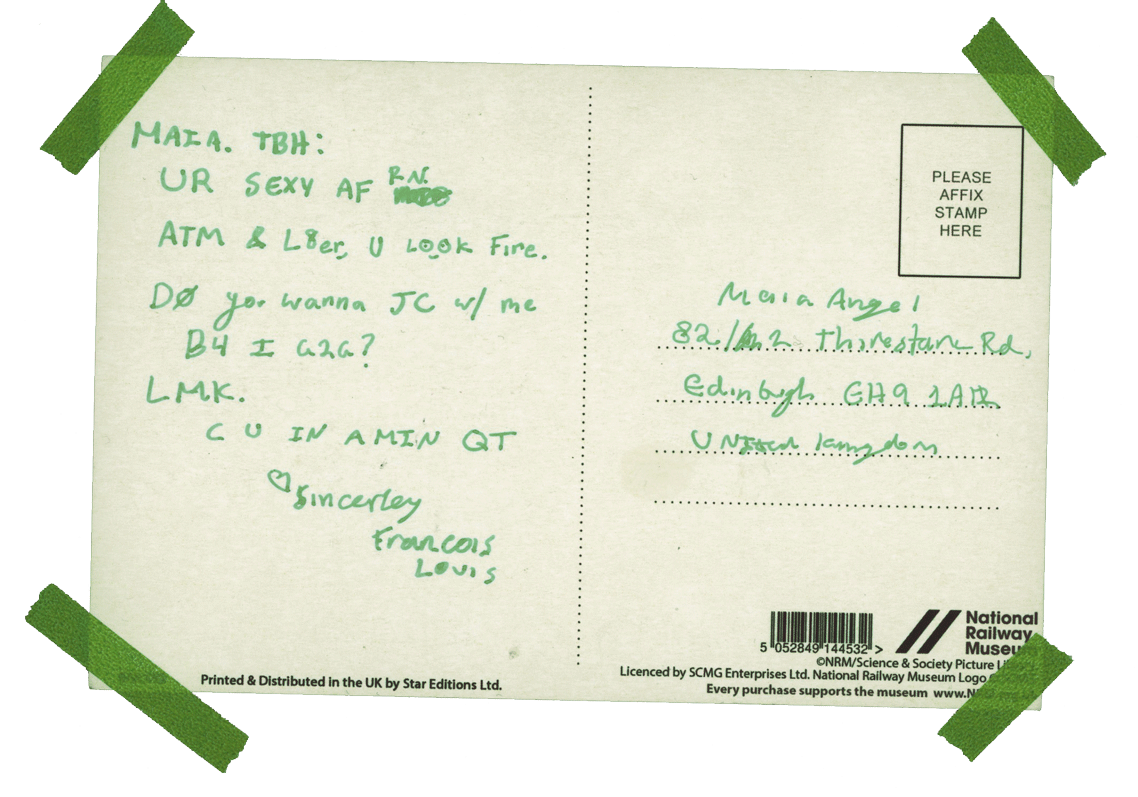 MAIA. TBH:
UR SEXY AF RN
ATM & L8er, U LOOK Fire.
DØ you wanna JC w/ me
B4 I G2G?
LMK.
C U IN A MIN QT
♡ Sincerley
Francois
Louis
PLEASE
AFFIX
STAMP
HERE
Maia Angel
82/ 2 Thirestane Rd,
Edinburgh GH9 1AR
UNited kingdom
5 052849 144532 >
National
Railway
Museum
©NRM/Science & Society Picture
Licenced by SCMG Enterprises Ltd. National Railway Museum Logo
Every purchase supports the museum www.N
Printed & Distributed in the UK by Star Editions Ltd.